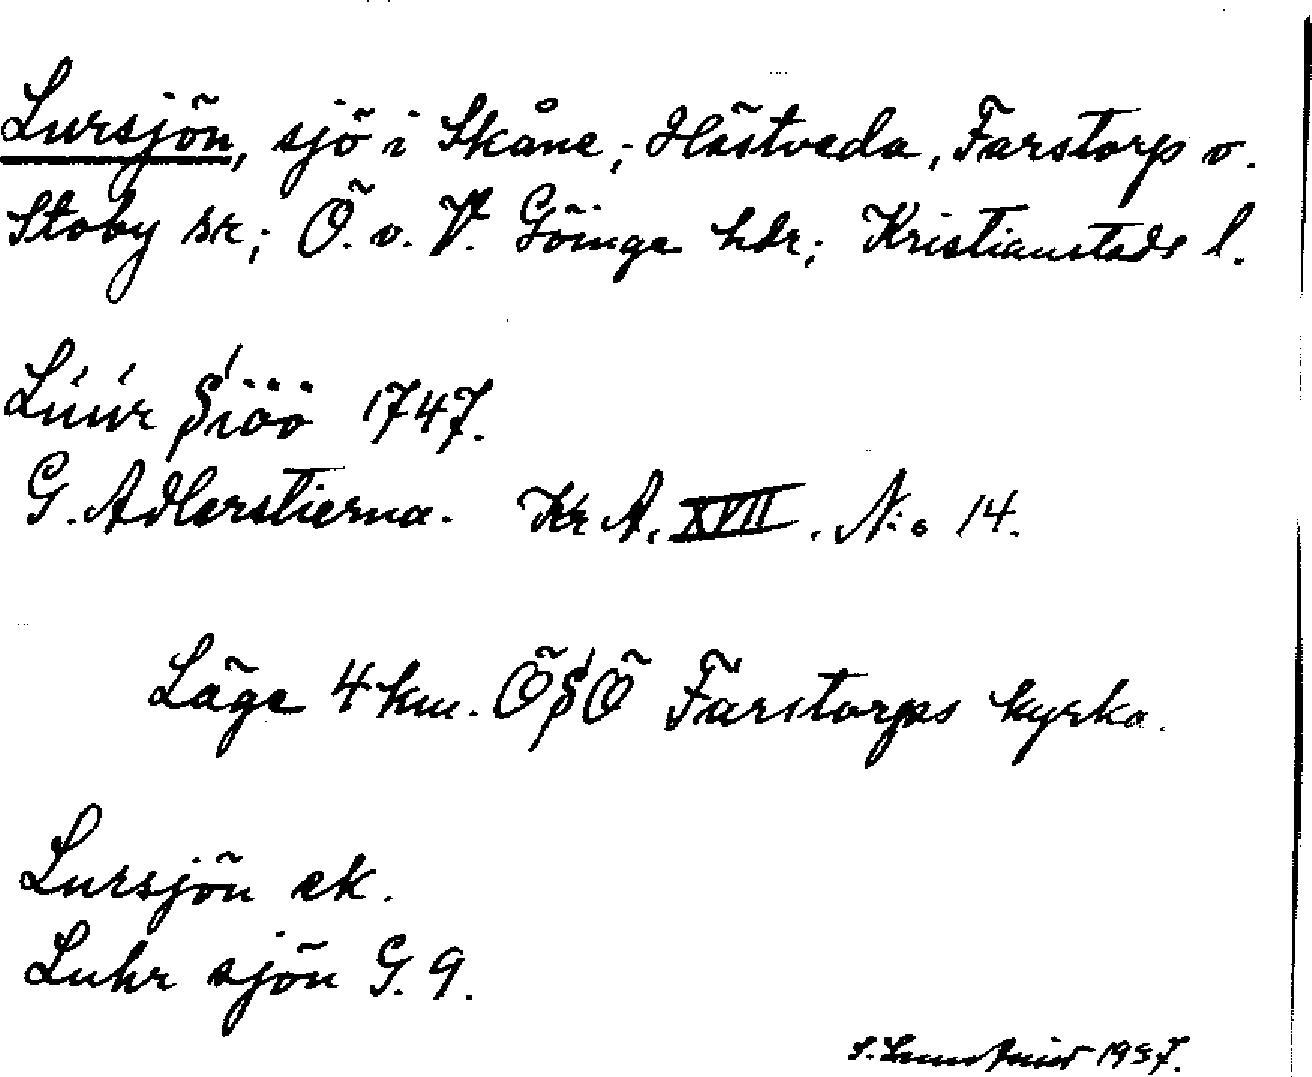 Lursjön, sjö i Skåne; Hästveda, Farstorp o.
Stoby sr; Ö. o. V. Göinge hdr; Kristianstads l.
Lúúr Siöö 1747.
G. Adlerstierna. Kr A. XVII. N:o 14.
Läge 4 km. ÖSÖ Farstorps kyrka.
Lursjön ek.
Luhr sjön G. 9.
1937.